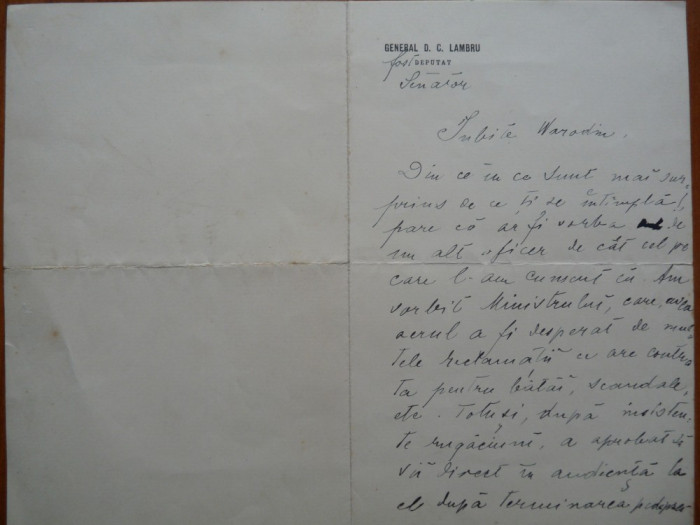 GENERAL D. C. LAMBRU
fost DEPUTAT
Senator
Iubite Warodin.
Din ce in ce sunt mai sur,
prins de ce ți se întimplă!
pare că ar fi vorba de
un alt oficer de cât cel pe
care l-am cunoscut eu. Am
vorbit Ministrului, care,
aerul a fi desperat de mul
tele reclamații ce are contra
ta pentru bătăi, scandale,
etc. Totuși, după insisten,
te rugăciuni, a aprobat să
vii direct în audiență la
el după terminarea